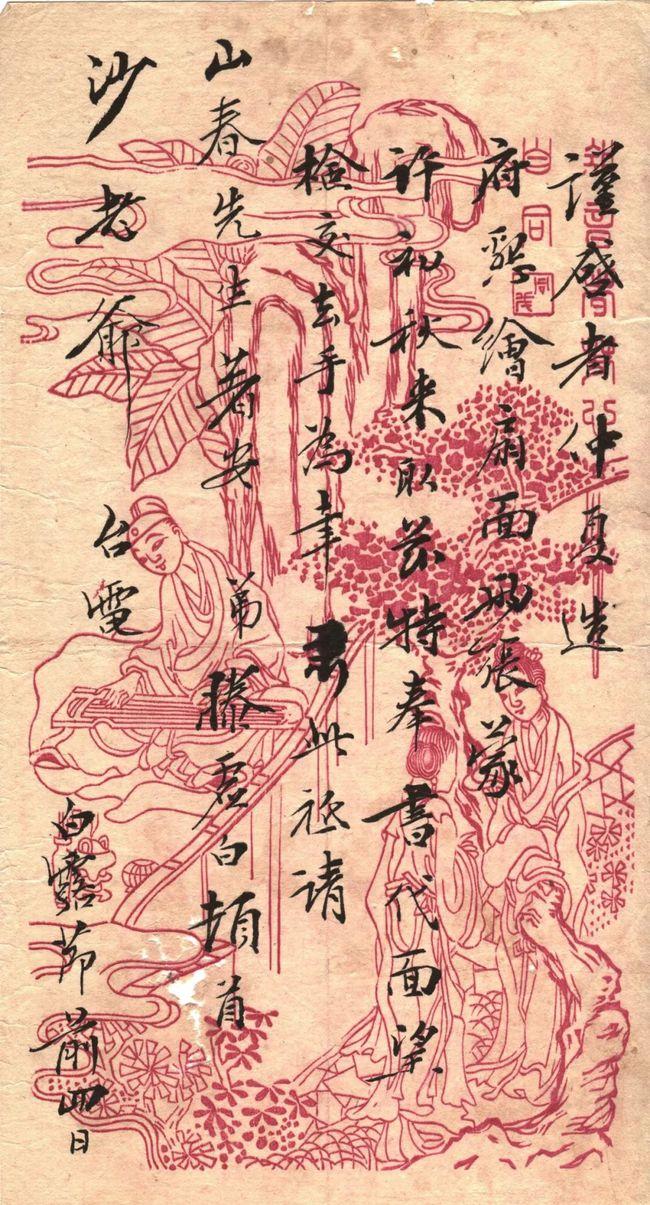 謹啓者仲夏造
府懇繪扇面兩張蒙
许初秋来取茲特奉書代面望
檢交去手為幸此祗請
山春先生著安弟滕虚白頓首
沙老爺台電
白露節前四日